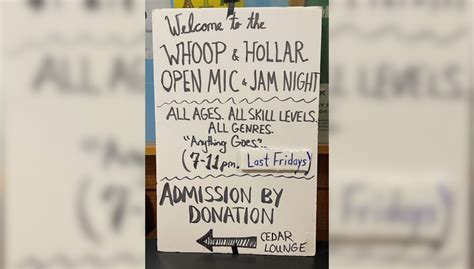 Welcome to the
WHOOP & HOLLAR
OPEN MIC & JAM NIGHT
ALL AGES. ALL SKILL LEVELS.
ALL GENRES.
"Anything Goes".
(7-11pm. Last Fridays)
ADMISSION BY
DONATION
CEDAR
LOUNGE